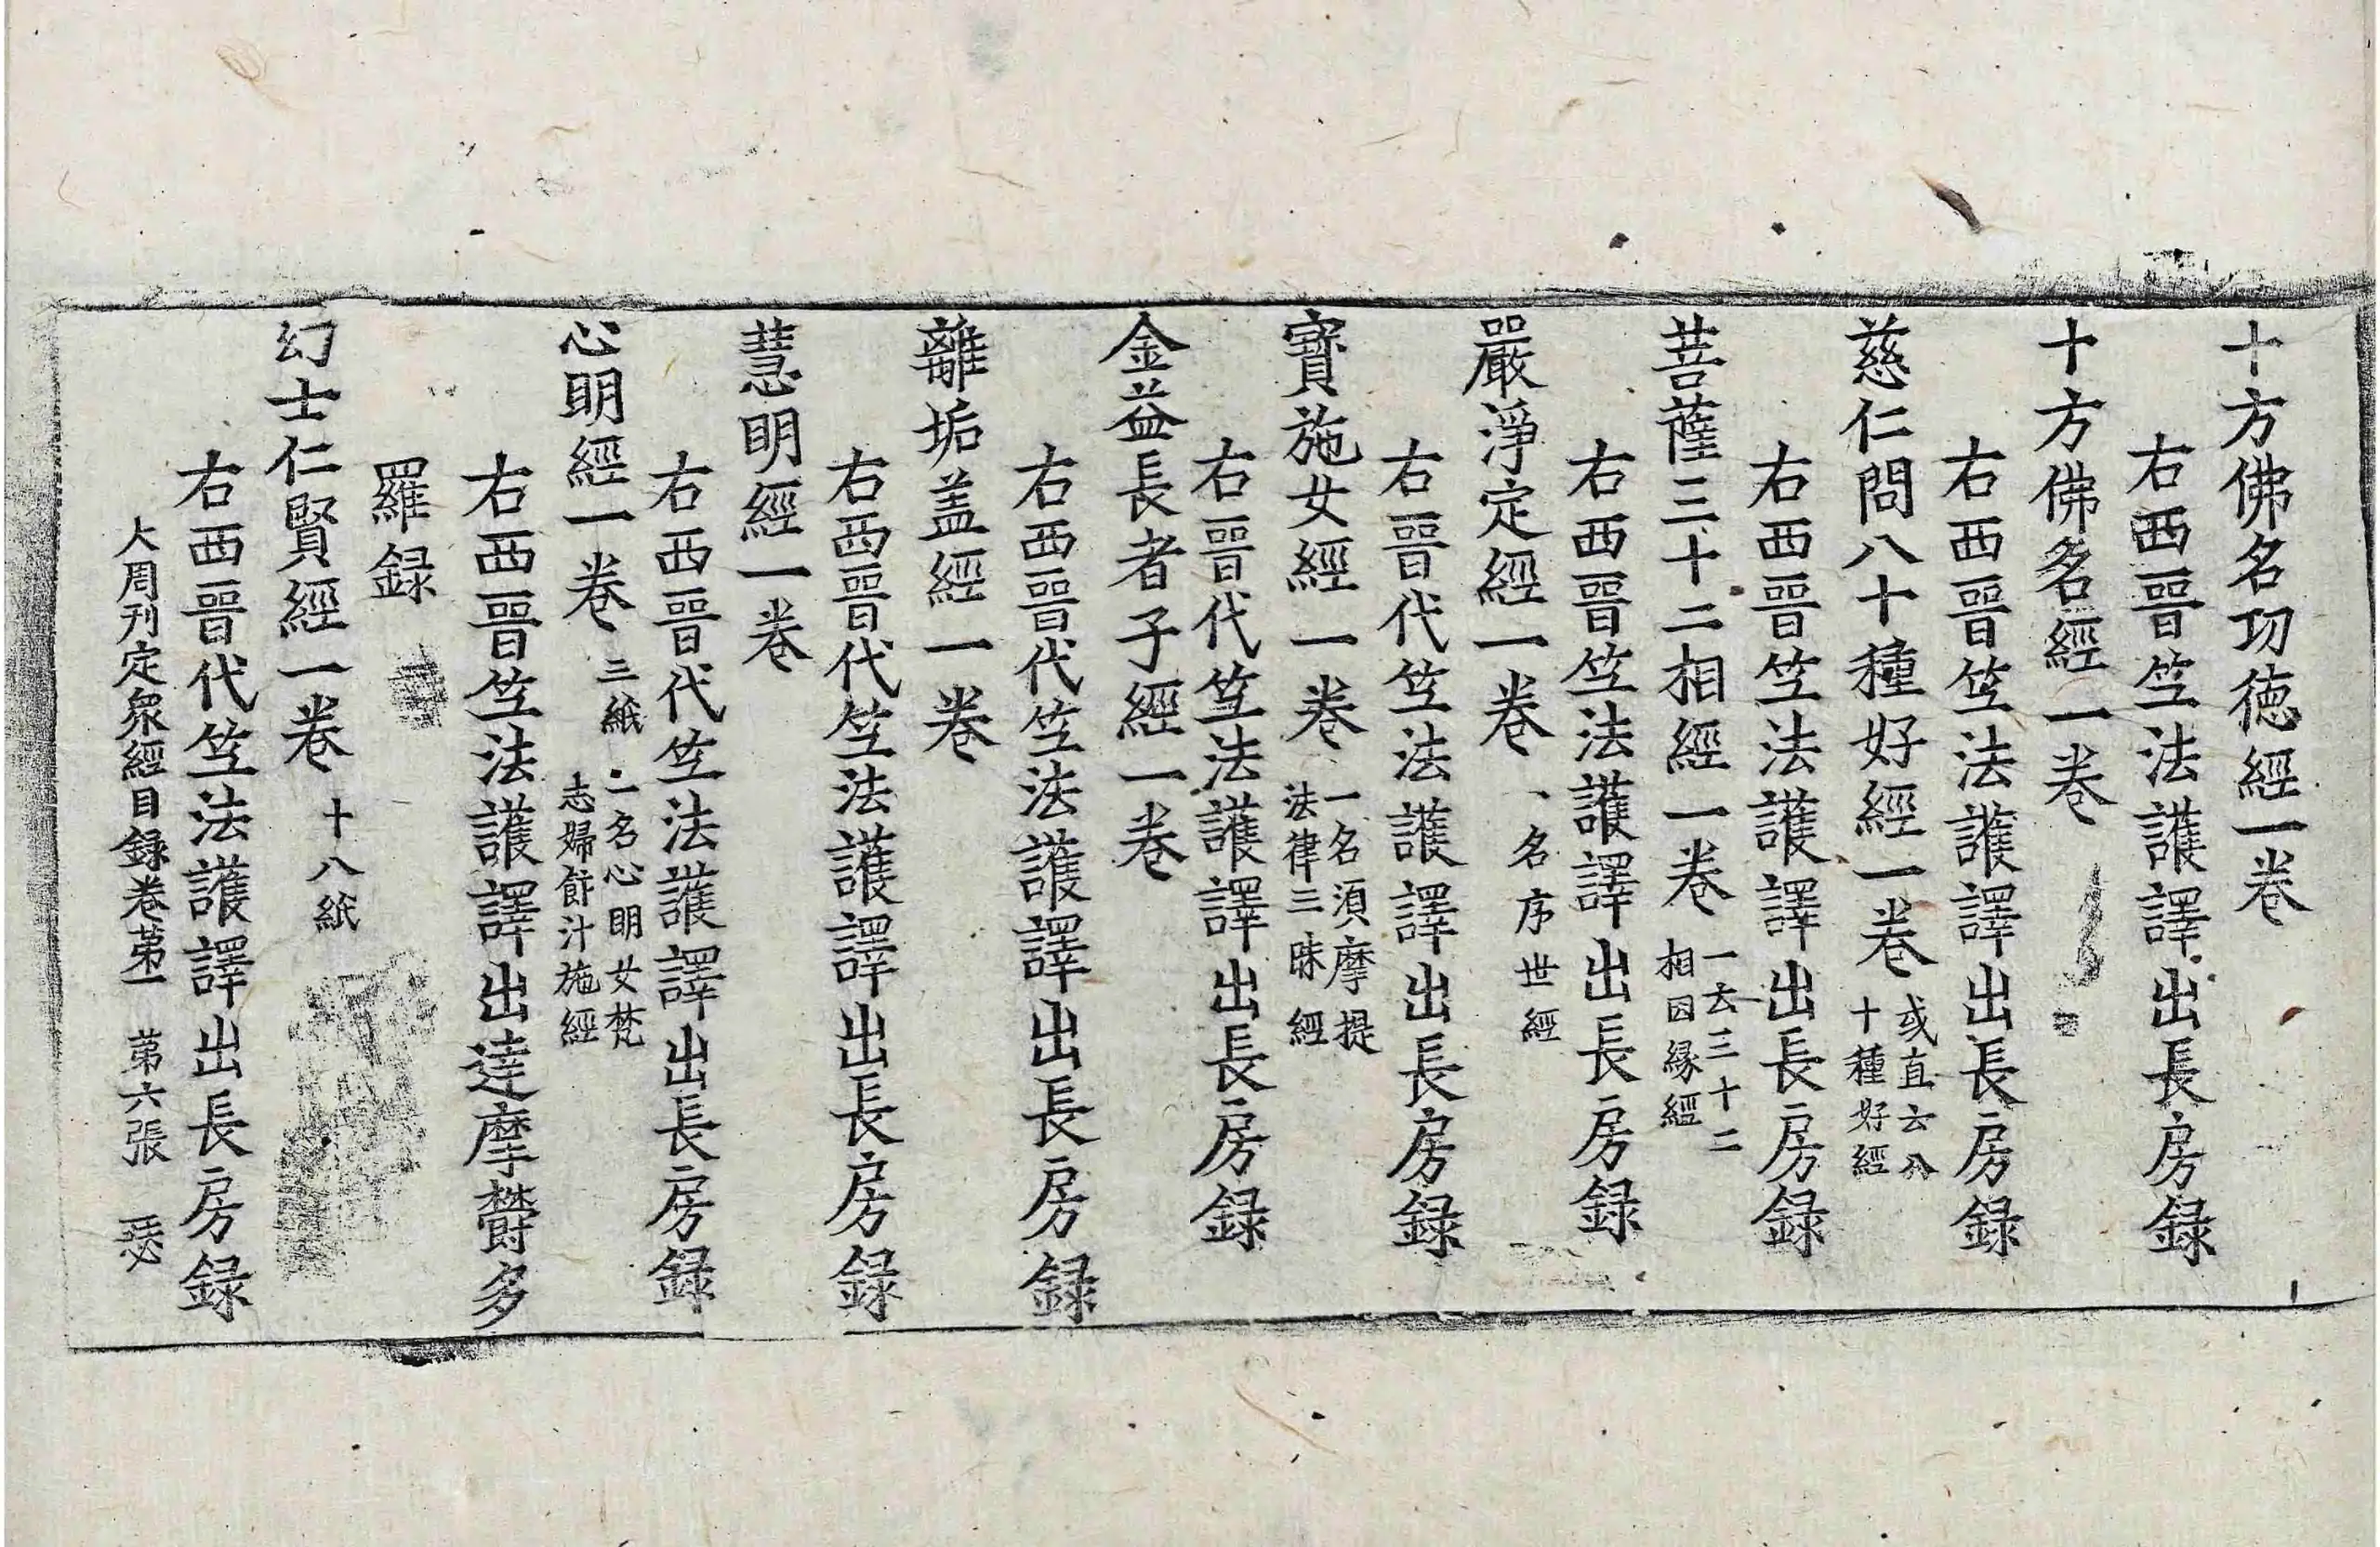 十方佛名功徳經一卷
右西晉竺法護譯出長房録
十方佛名經一卷
右西晉竺法護譯出長房録
慈仁問八十種好經一卷 或直云八
十種好經
右西晉竺法護譯出長房録
菩薩三十二相經一卷 一云三十二
相因縁經
右西晉竺法護譯出長房録
嚴淨定經一卷 一名序世經
右晉代竺法護譯出長房録
寶施女經一卷 一名湏摩提
法律三昧經
右晉代竺法護譯出長房録
金益長者子經一卷
右西晉代竺法護譯出長房録
離垢盖經一卷
右西晉代竺法護譯出長房録
慧明經一卷
右西晉代竺法護譯出長房録
心明經一卷 三紙 一名心明女梵
志婦飰汁施經
右西晉竺法護譯出達摩欝多
羅録
幻士仁賢經一卷 十八紙
右西晉代竺法護譯出長房録
大周刊定衆經目録卷苐一 苐六張